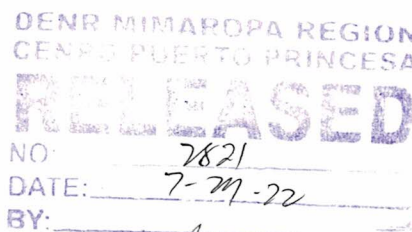 DENR MIMAROPA REGION
CENRO PUERTO PRINCESA
RELEASED
NO: 2821
DATE: 7-21-22
BY: